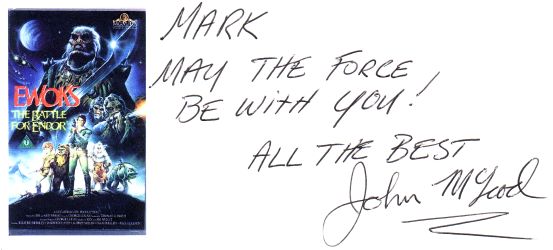 EWOKS
THE BATTLE
FOR ENDOR
U
MARK
MAY THE FORCE
BE WITH YOU!
ALL THE BEST
John McLeod